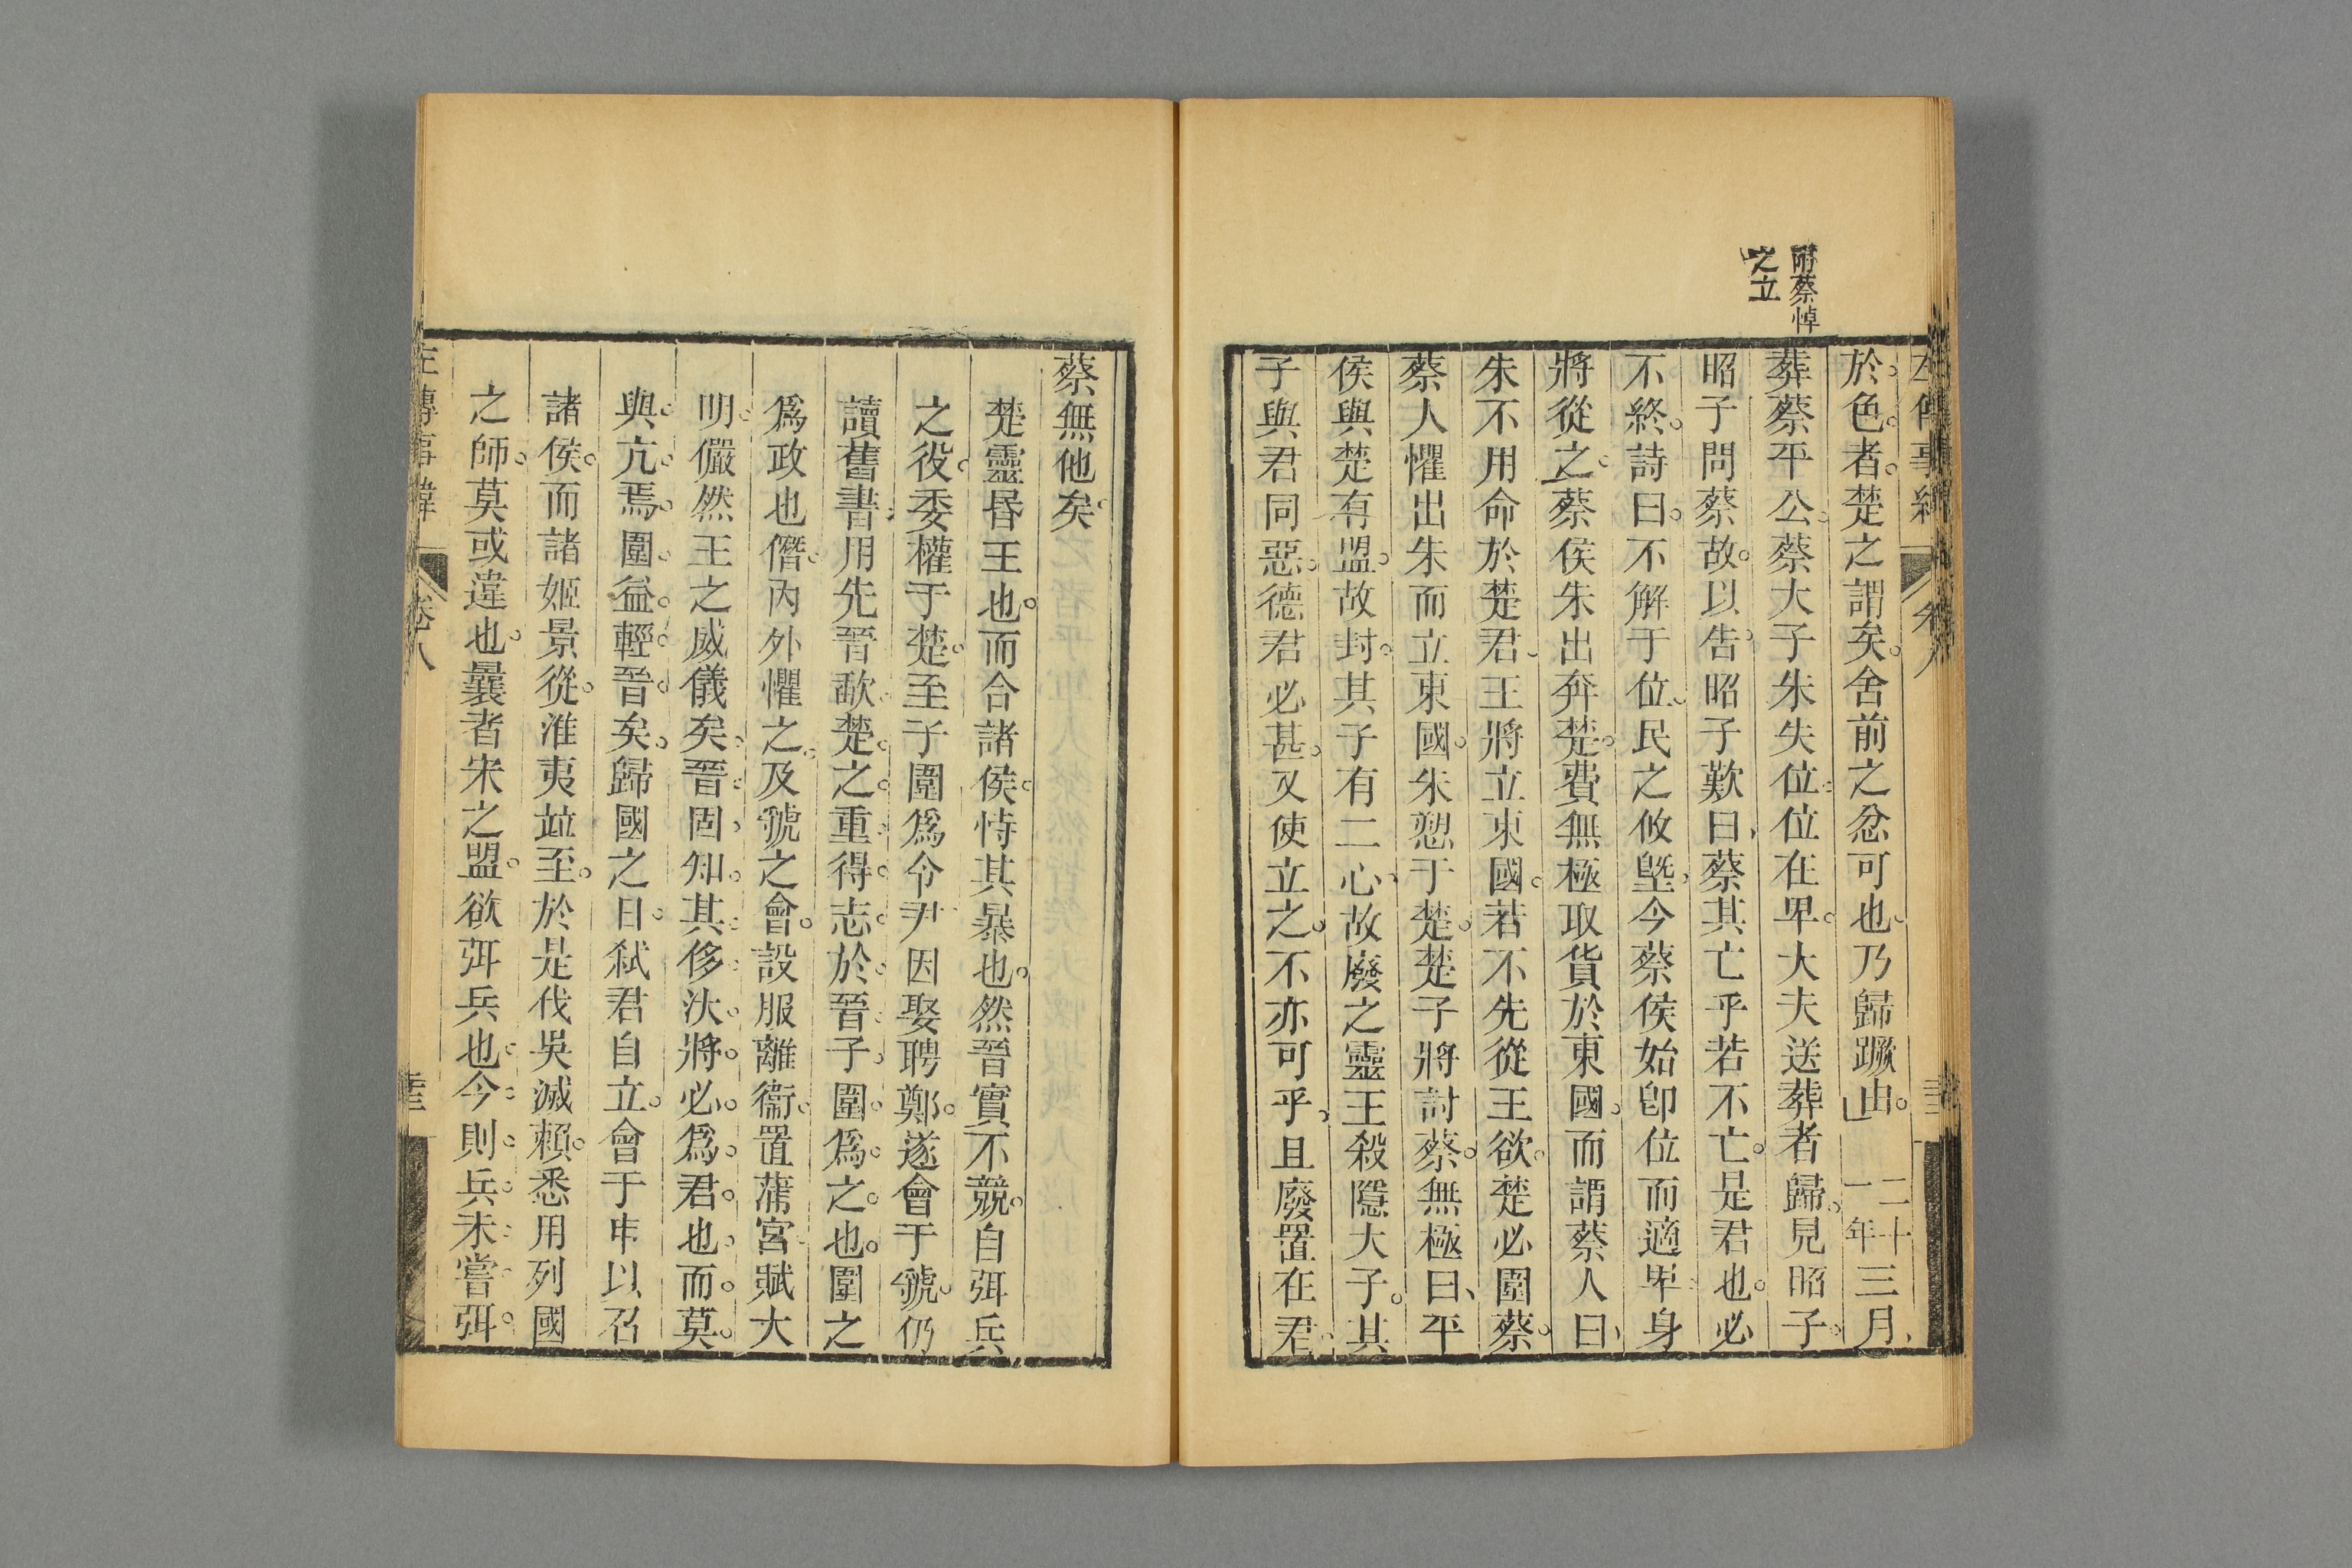 附蔡悼
之立
於色者楚之謂矣舍前之忿可也乃歸蹶由 二十一年三月
葬蔡平公蔡大子朱失位位在卑大夫送葬者歸見昭子
昭子問蔡故以告昭子歎曰蔡其亡乎若不亡是君也必
不終詩曰不解于位民之攸塈今蔡侯始卽位而適卑身
將從之蔡侯朱出奔楚費無極取貨於東國而謂蔡人曰
朱不用命於楚君王將立東國若不先從王欲楚必圍蔡
蔡人懼出朱而立東國朱愬于楚楚子將討蔡無極曰平
侯與楚有盟故封其子有二心故廢之靈王殺隱大子其
子與君同惡德君必甚又使立之不亦可乎且廢置在君
蔡無他矣
楚靈昬王也而合諸侯恃其暴也然晉實不競自弭兵
之役委權于楚至子圍爲令尹因娶聘鄭遂會于虢仍
讀舊書用先晉歃楚之重得志於晉子圍爲之也圍之
爲政也僭內外懼之及虢之會設服離衞置蒲宮賦大
明儼然王之威儀矣晉固知其侈汰將必爲君也而莫
與亢焉圍益輕晉矣歸國之日弑君自立會于申以召
諸侯而諸姬景從淮夷竝至於是伐吳滅賴悉用列國
之師莫或違也曩者宋之盟欲弭兵也今則兵未嘗弭
左傳事緯 卷八